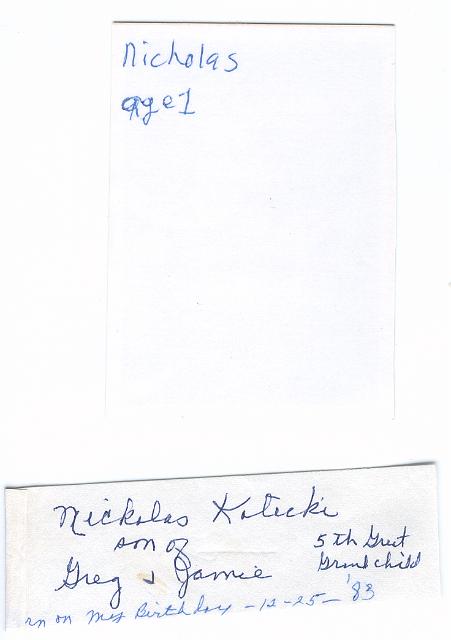 Nicholas
age 1
Nickolas Kotecki
son of
Greg & Jamie
5th Great
Grand child
rn on My Birthday - 12-25- '83